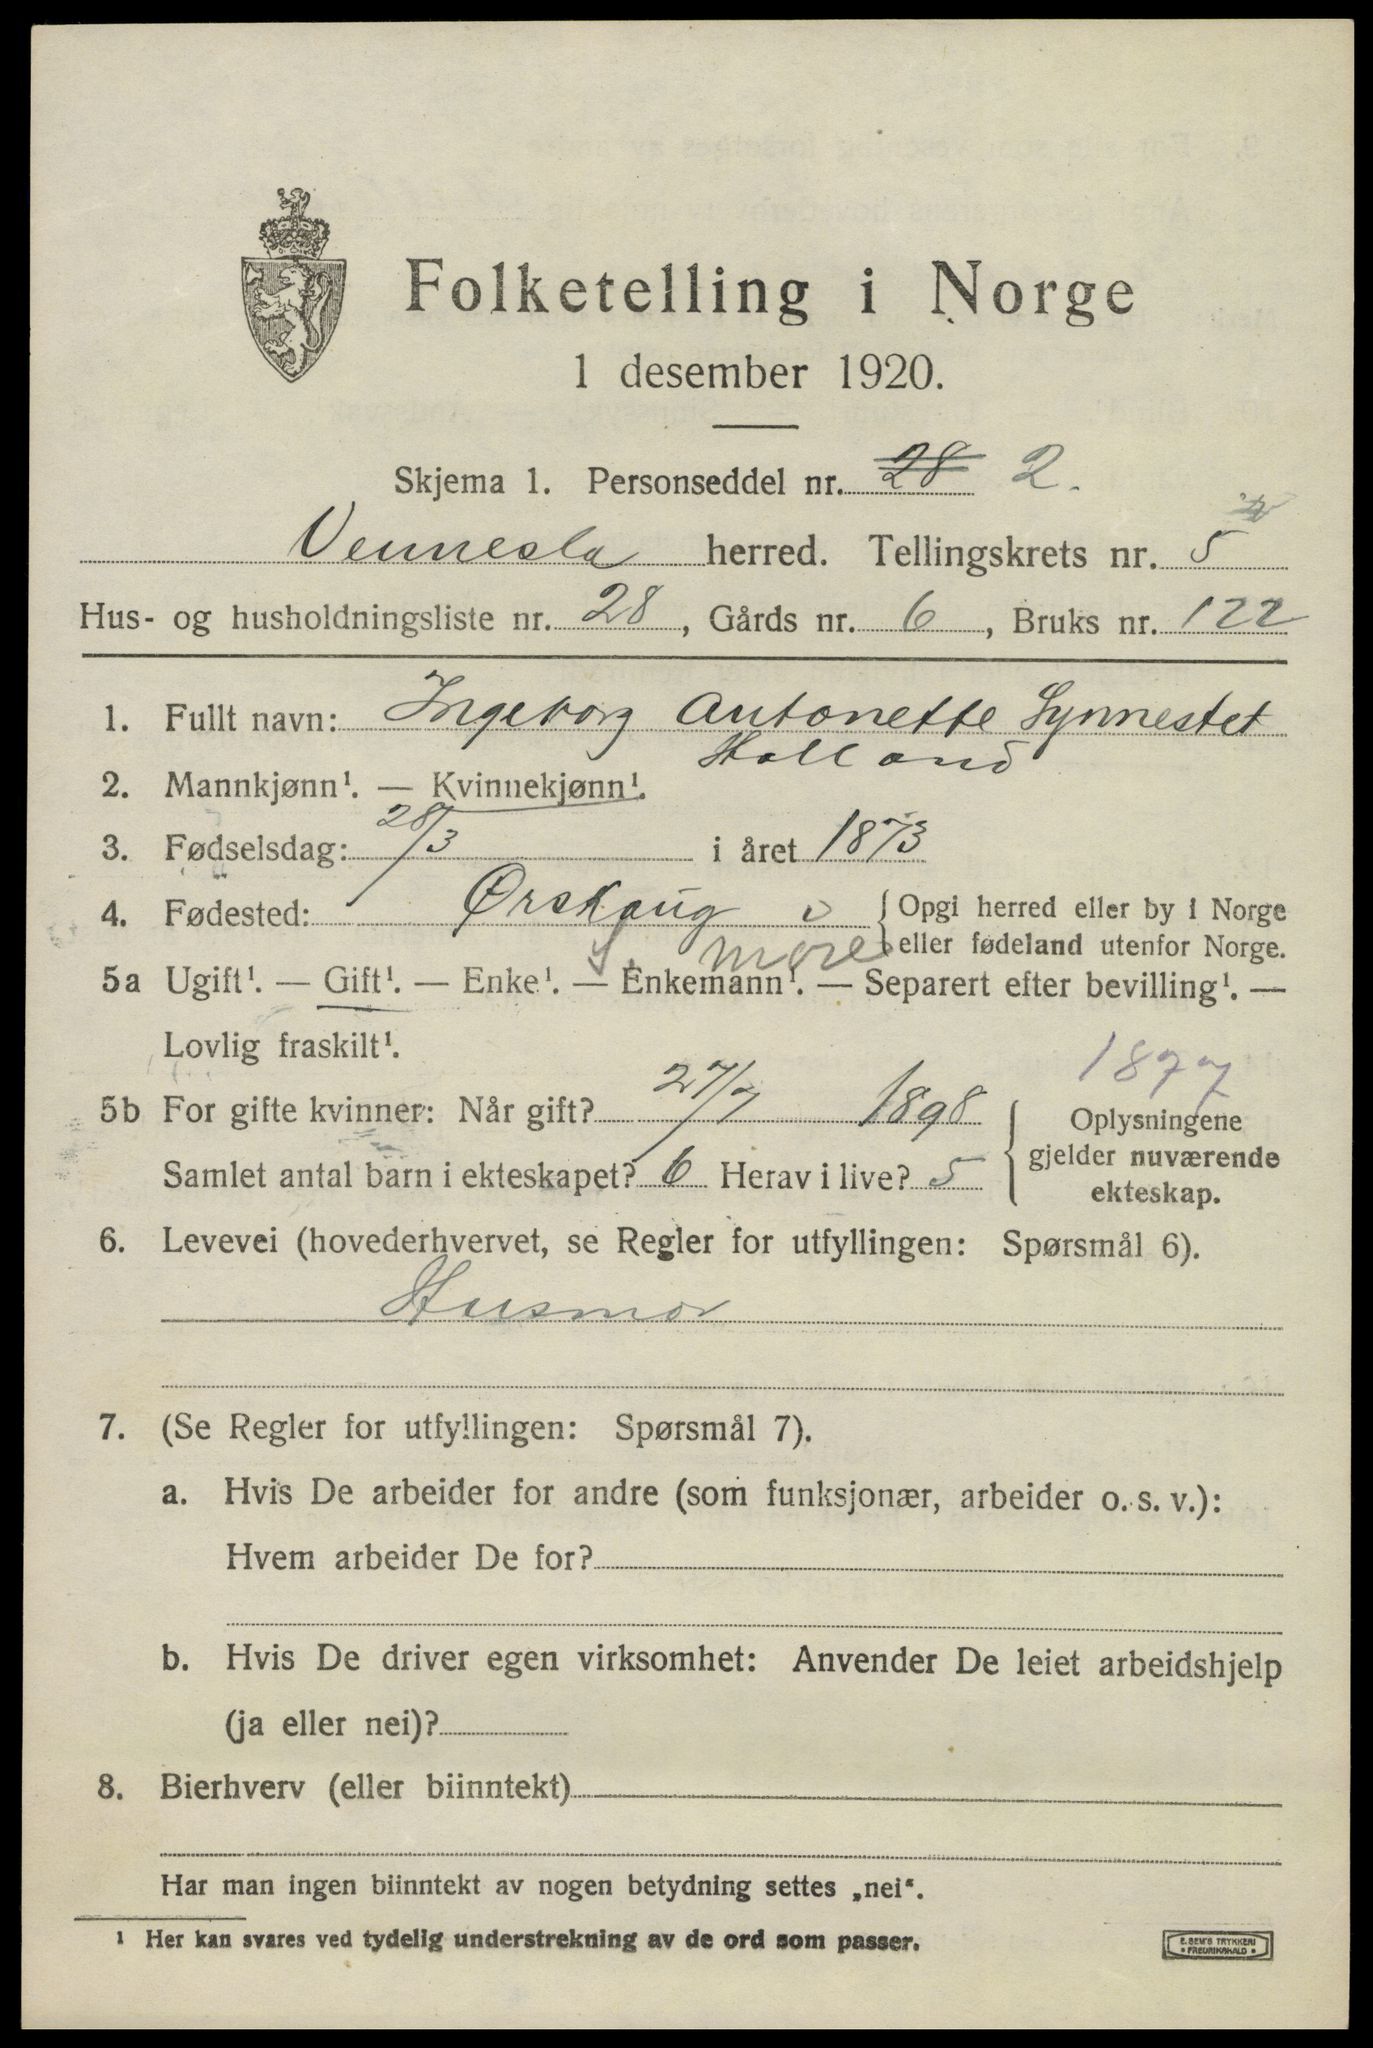 Folketelling i Norge
1 desember 1920.
Skjema 1. Personseddel nr. 28 2.
Vennesla herred. Tellingskrets nr. 5
Hus- og husholdningsliste nr. 28, Gårds nr. 6, Bruks nr. 122
1. Fullt navn: Ingeborg Antonette Synnestet
Holland
2. Mannkjønn¹. — Kvinnekjønn¹.
3. Fødselsdag: 28/3 i året 1873
4. Fødested: Ørskoug { Opgi herred eller by i Norge
S. møre eller fødeland utenfor Norge.
5a Ugift¹. — Gift¹. — Enke¹. — Enkemann¹. — Separert efter bevilling¹. —
Lovlig fraskilt¹.
1877
5b For gifte kvinner: Når gift? 27/7 1898 { Oplysningene
gjelder nuværende
Samlet antal barn i ekteskapet? 6 Herav i live? 5 ekteskap.
6. Levevei (hovederhvervet, se Regler for utfyllingen: Spørsmål 6).
Husmor
7. (Se Regler for utfyllingen: Spørsmål 7).
a. Hvis De arbeider for andre (som funksjonær, arbeider o. s. v.):
Hvem arbeider De for?
b. Hvis De driver egen virksomhet: Anvender De leiet arbeidshjelp
(ja eller nei)?
8. Bierhverv (eller biinntekt)
Har man ingen biinntekt av nogen betydning settes „nei“.
¹ Her kan svares ved tydelig understrekning av de ord som passer.
E. SEM'S TRYKKERI
• FREDRIKSHALD •